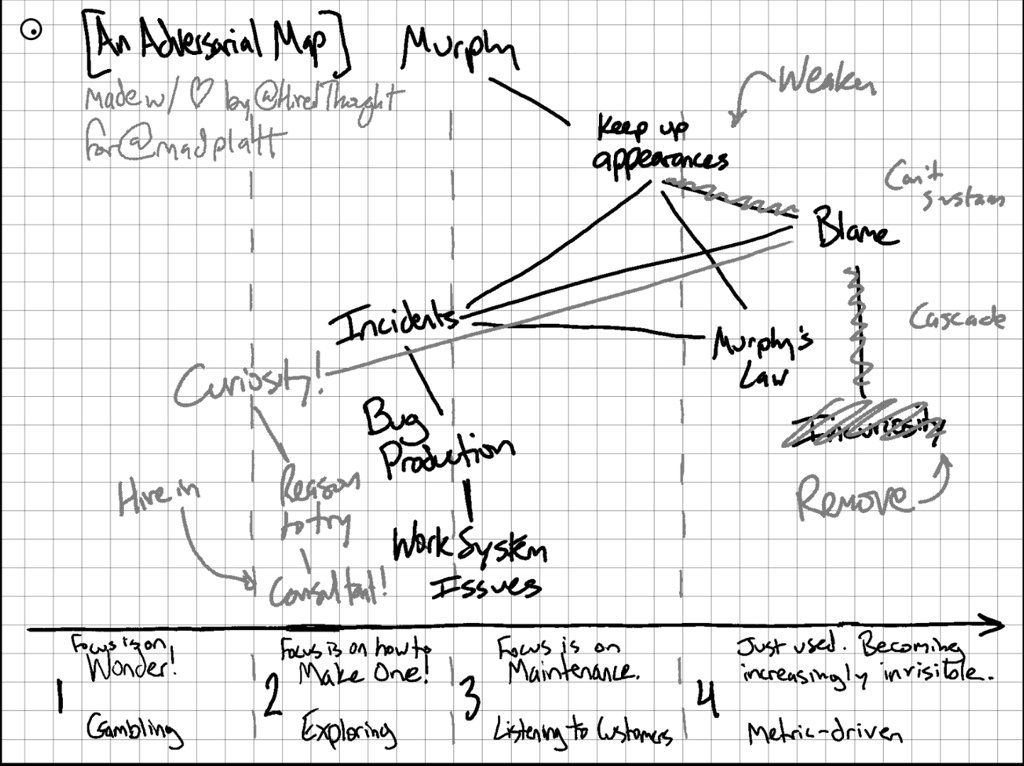 [An Adversarial Map]
made w/ ♡ by @HiredThought
for @madplatt
Murphy
Weaken
Keep up
appearances
Can't
sustain
Blame
Incidents
Cascade
Murphy's
Law
Curiosity!
Bug
Production
Incuriosity
Remove
Hire in
Reason
to try
Work System
Issues
Consultant!
1
Focus is on
Wonder!
Gambling
2
Focus is on how to
Make One!
Exploring
3
Focus is on
Maintenance.
Listening to Customers
4
Just used. Becoming
increasingly invisible.
Metric-driven